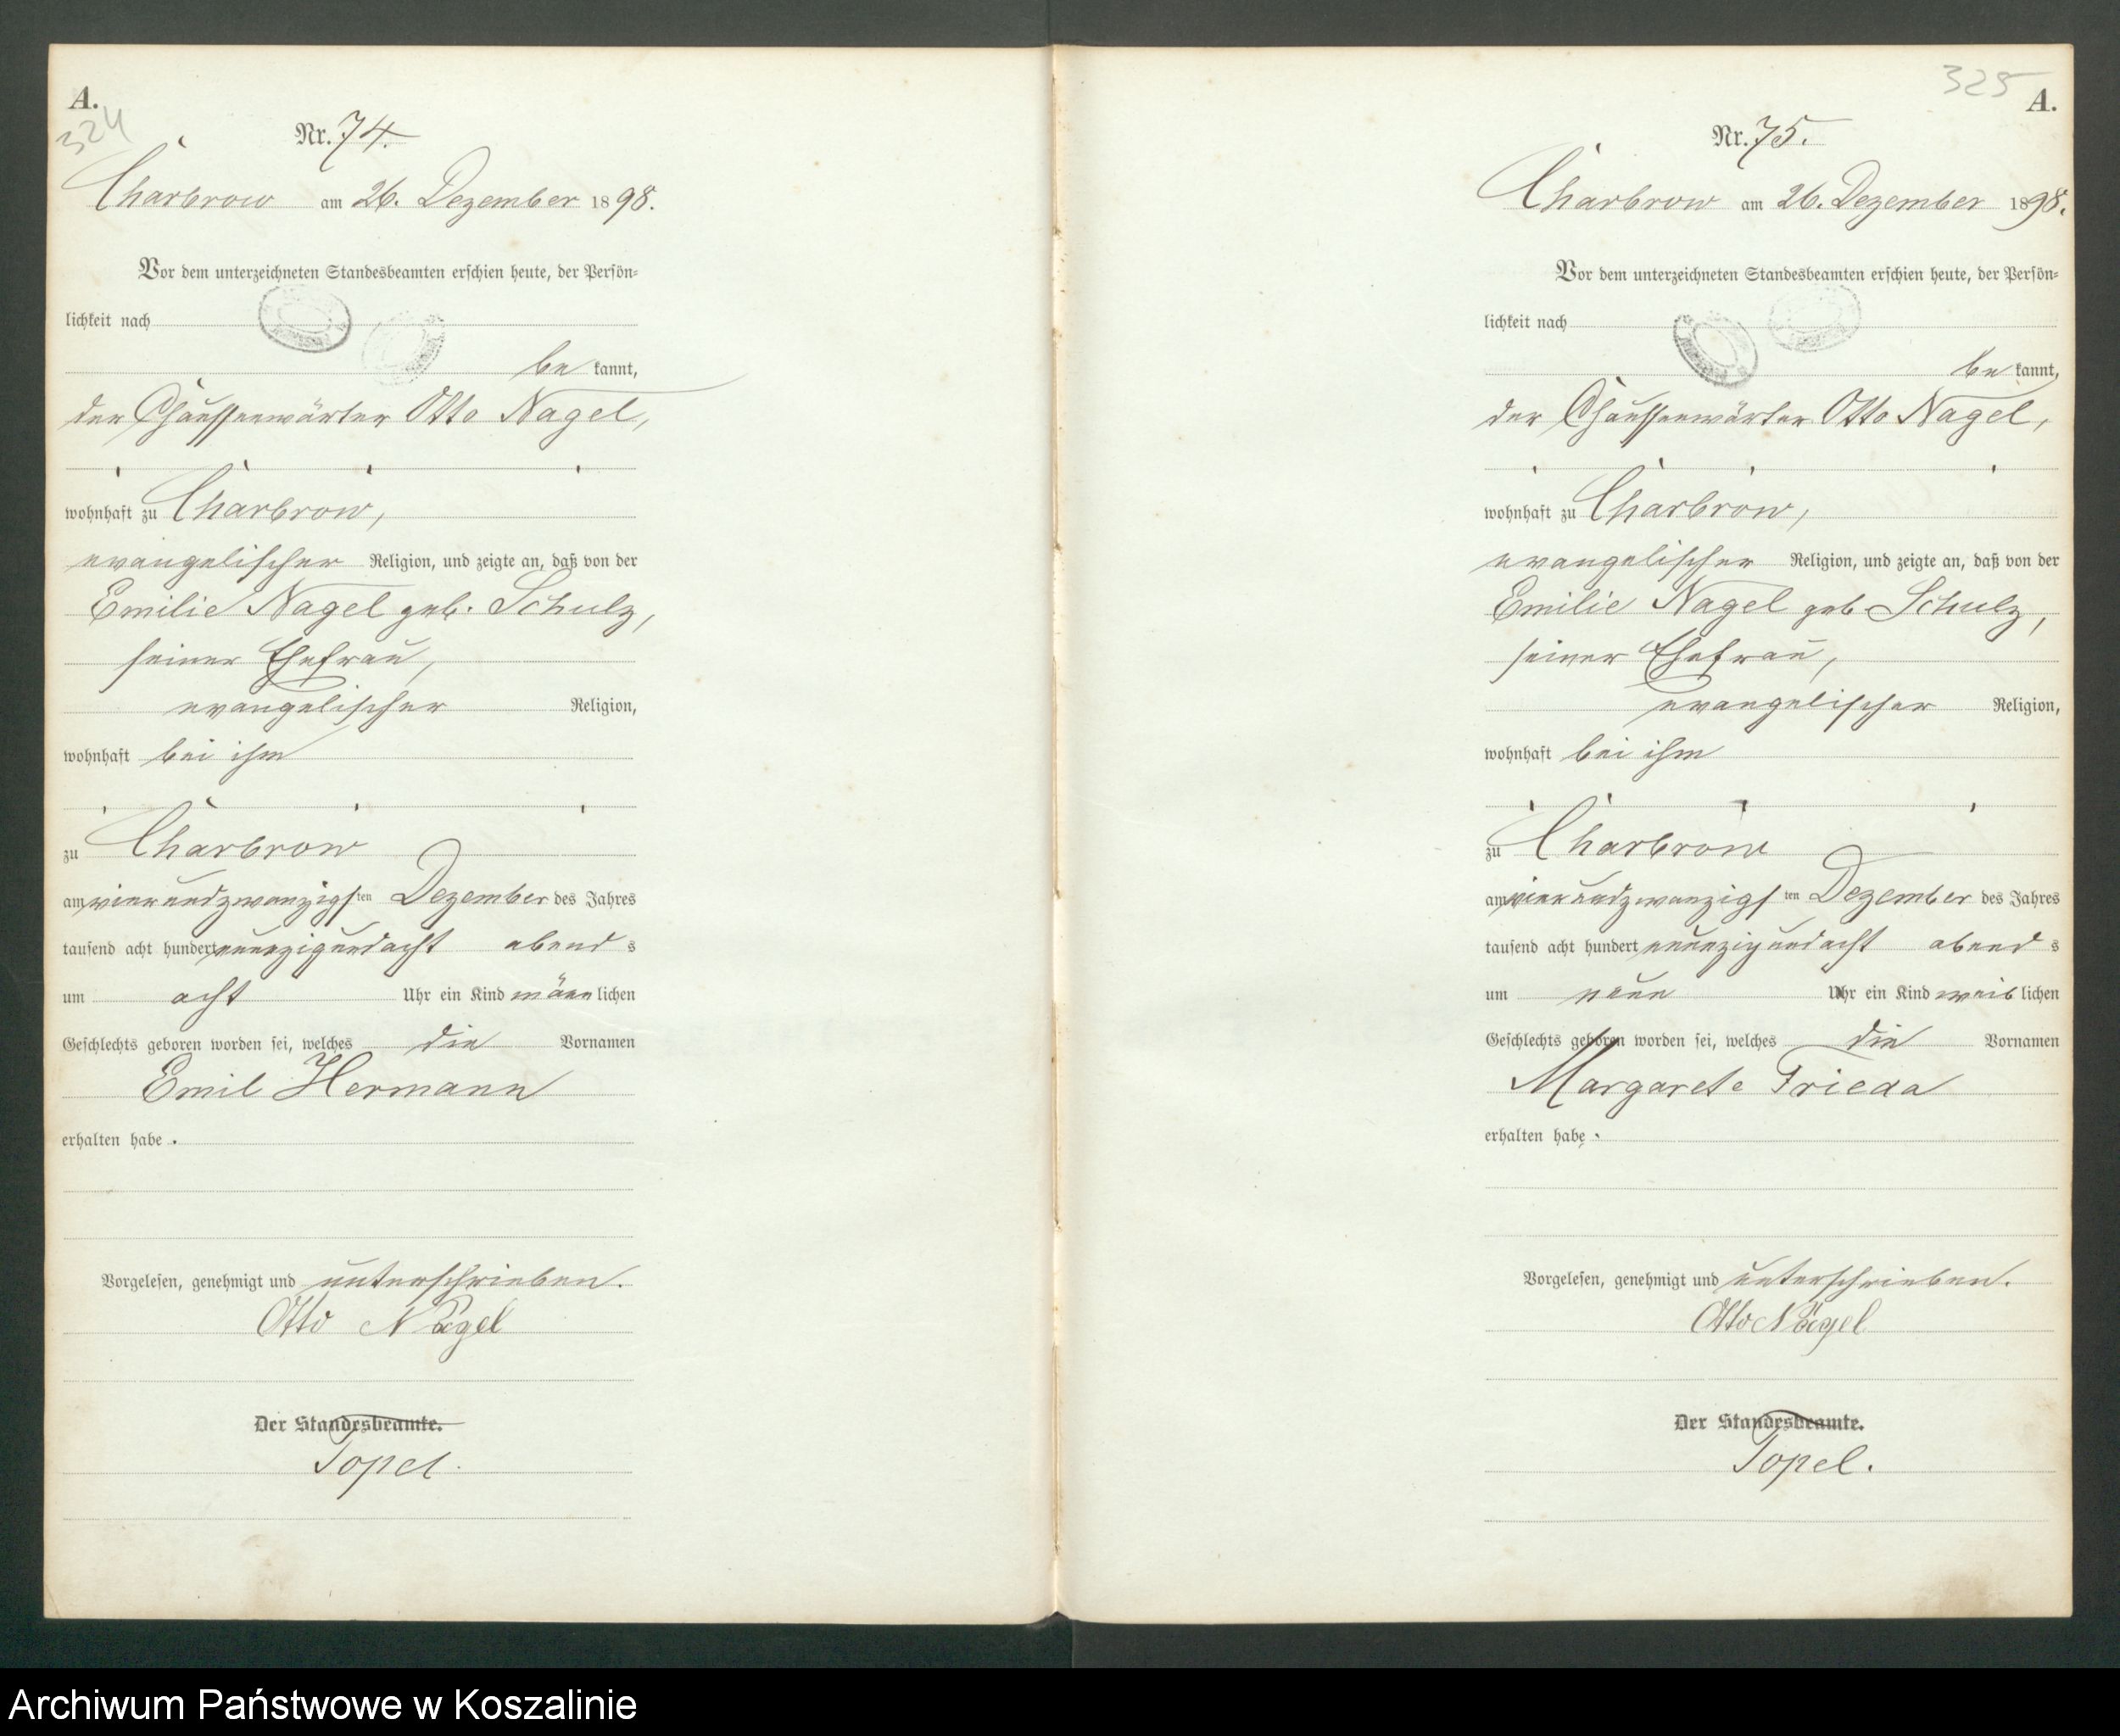 A.
324
Nr. 74.
Charbrow am 26. Dezember 1898.
Vor dem unterzeichneten Standesbeamten erschien heute, der Persön-
lichkeit nach
be kannt,
der Chausseewärter Otto Nagel,
wohnhaft zu Charbrow,
evangelischer Religion, und zeigte an, daß von der
Emilie Nagel geb. Schulz,
seiner Ehefrau,
evangelischer Religion,
wohnhaft bei ihm
zu Charbrow
am vierundzwanzigsten Dezember des Jahres
tausend acht hundert neunzigundacht abend s
um acht Uhr ein Kind männlichen
Geschlechts geboren worden sei, welches die Vornamen
Emil Hermann
erhalten habe.
Vorgelesen, genehmigt und unterschrieben.
Otto Nagel
Der Standesbeamte.
Topel.
325
A.
Nr. 75.
Charbrow am 26. Dezember 1898.
Vor dem unterzeichneten Standesbeamten erschien heute, der Persön-
lichkeit nach
be kannt,
der Chausseewärter Otto Nagel,
wohnhaft zu Charbrow,
evangelischer Religion, und zeigte an, daß von der
Emilie Nagel geb. Schulz,
seiner Ehefrau,
evangelischer Religion,
wohnhaft bei ihm
zu Charbrow
am vierundzwanzigsten Dezember des Jahres
tausend acht hundert neunzigundacht abend s
um neun Uhr ein Kind weiblichen
Geschlechts geboren worden sei, welches die Vornamen
Margarete Frieda
erhalten habe.
Vorgelesen, genehmigt und unterschrieben.
Otto Nagel
Der Standesbeamte.
Topel.
Archiwum Państwowe w Koszalinie